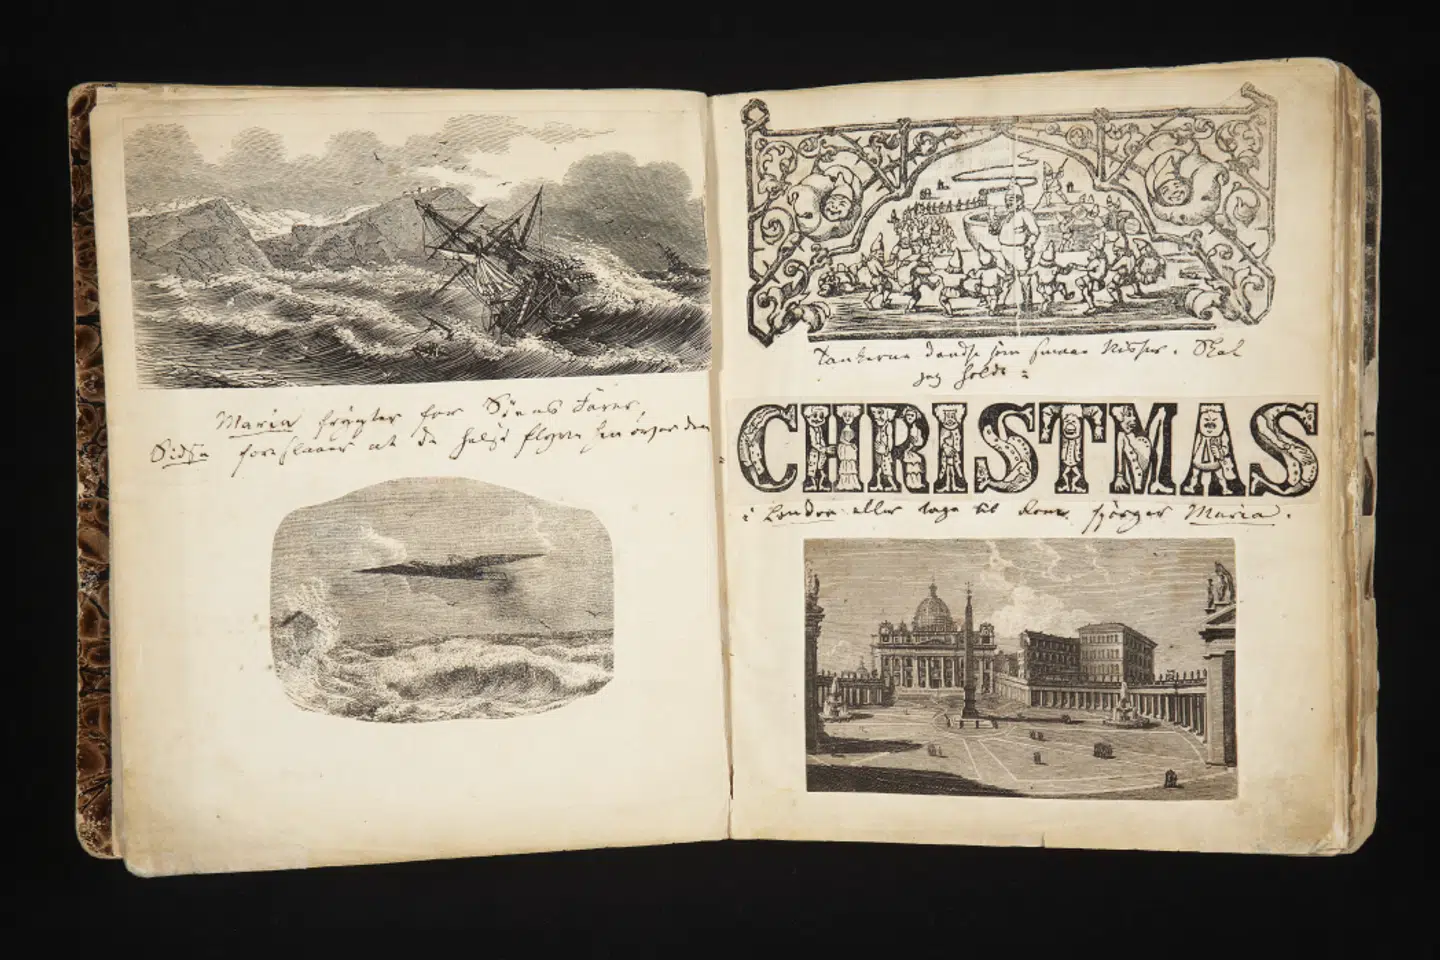 Maria frygter for Søens Farer,
Sidse foreslaaer at de heller flyve hen over den
Tankerne dandse som smaae Nisser. Skal
jeg holde :
CHRISTMAS
i London eller tage til Rom spørger Maria.